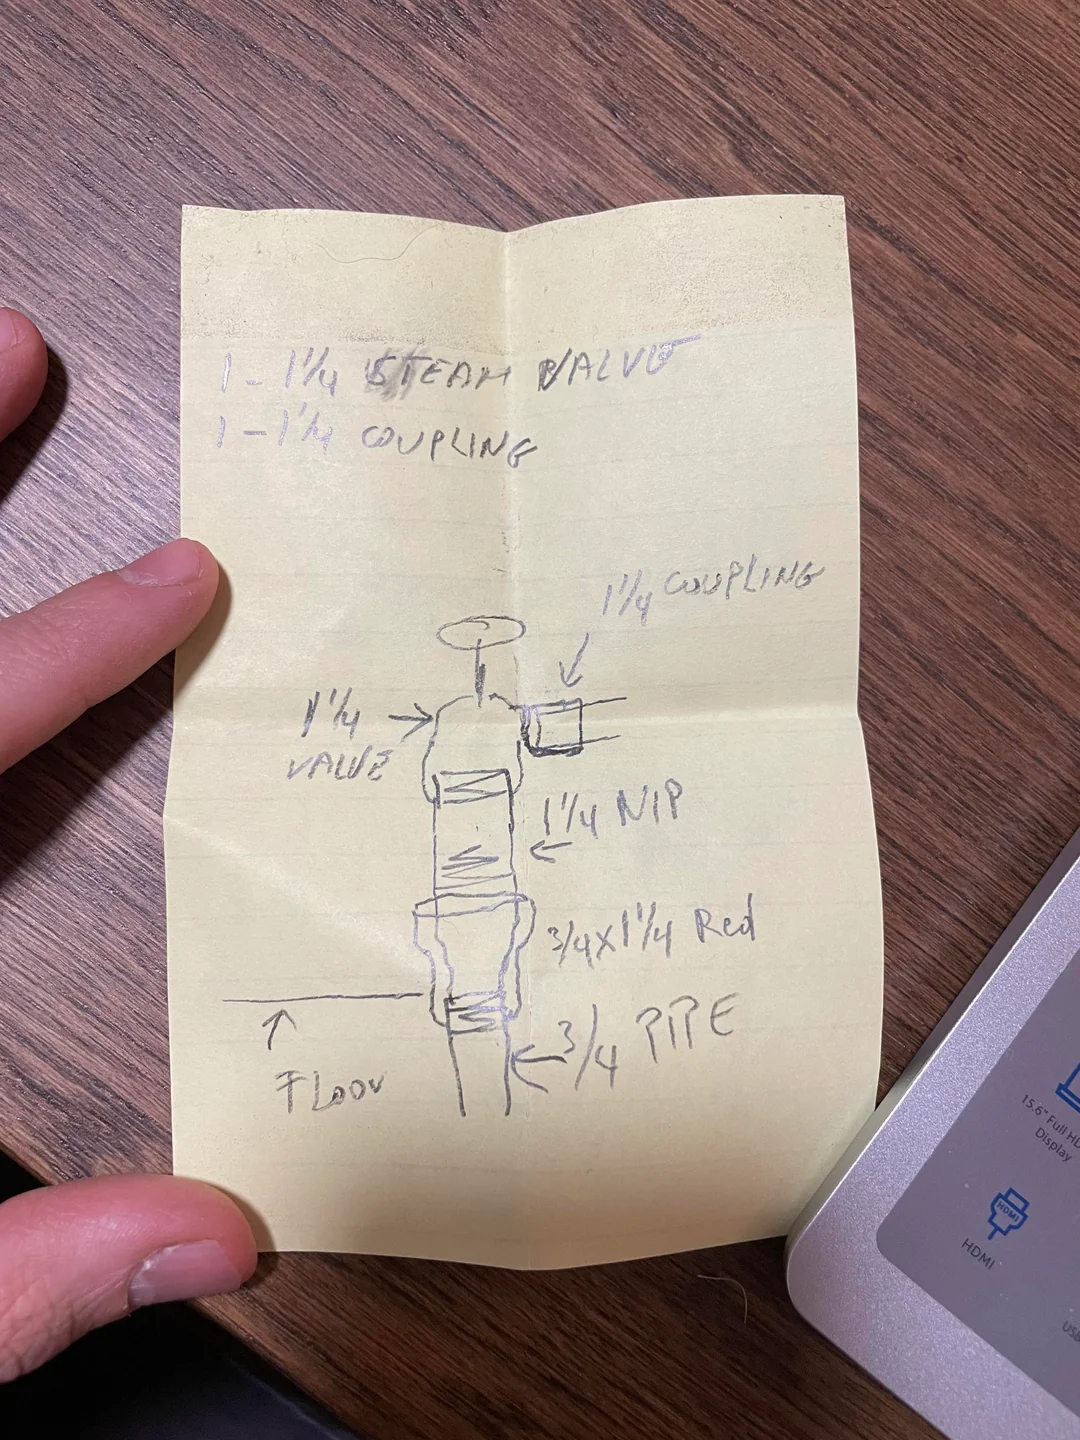 1 - 1 1/4 STEAM VALVE
1 - 1 1/4 COUPLING
1 1/4 COUPLING
1 1/4
VALVE
1 1/4 NIP
3/4 X 1 1/4 Red
3/4 PIPE
FLOOr
15.6" Full HD
Display
HDMI